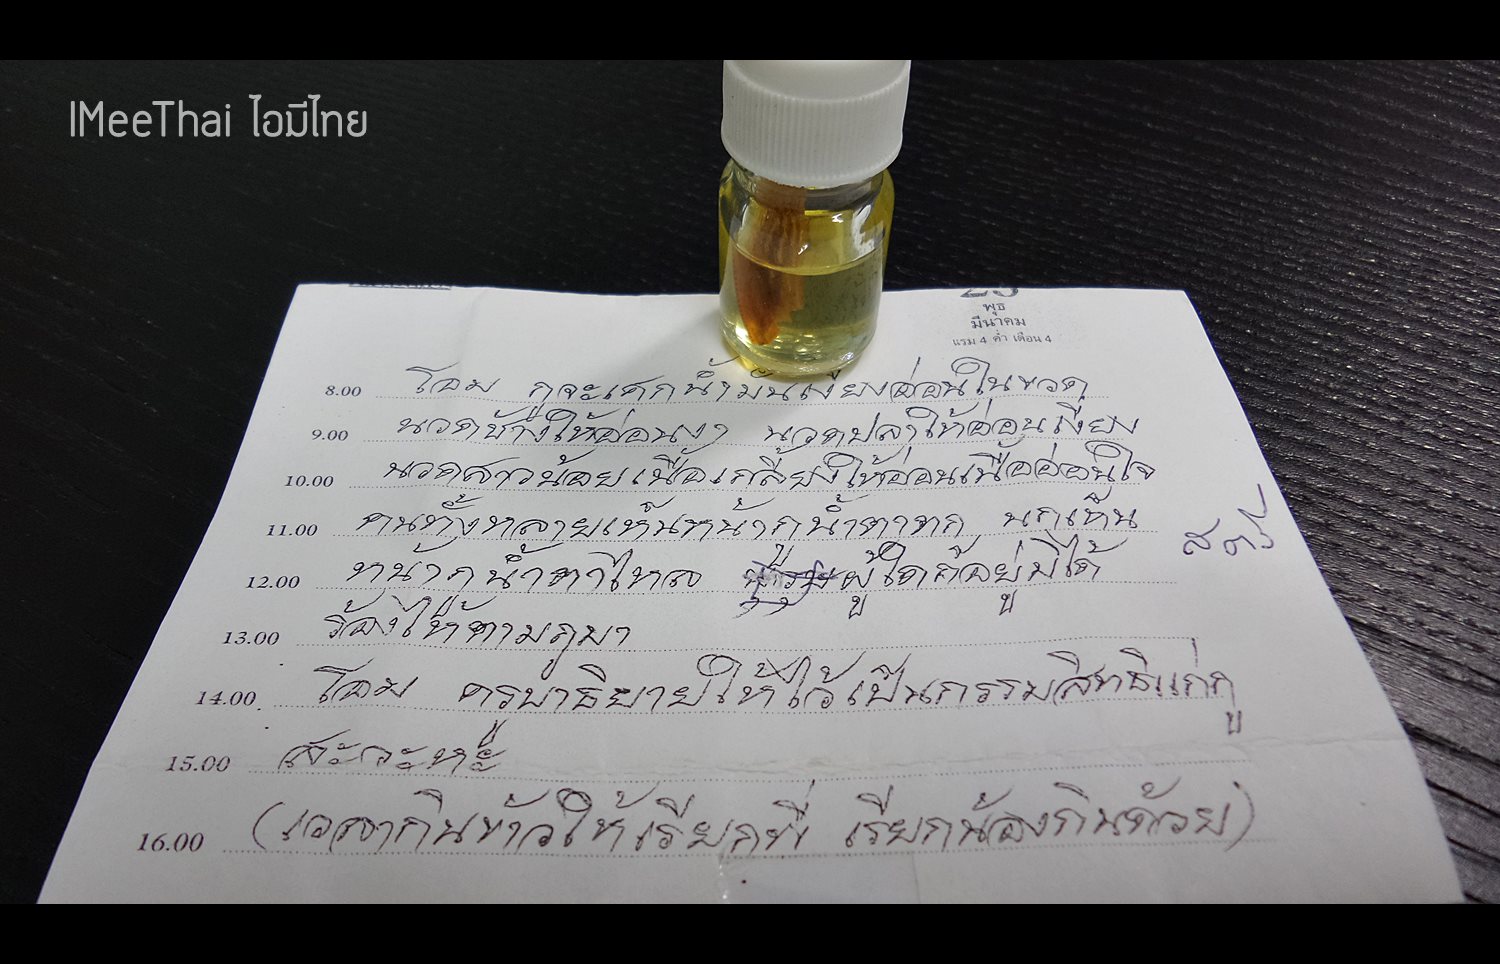 IMeeThai ไอมีไทย
พุธ
มีนาคม
แรม 4 ค่ำ เดือน 4
8.00 โอม กูจะเศกน้ำมันเงี่ยงอ่อนในขวด
9.00 นวดช้างให้อ่อนงา นวดปลาให้อ่อนเงี่ยง
10.00 นวดสาวน้อยเนื้อเกลี้ยงให้อ่อนเนื้ออ่อนใจ
11.00 คนทั้งหลายเห็นหน้ากูน้ำตาตก นกเห็น
สตรี
12.00 หน้ากูน้ำตาไหล ผู้ใดก็อยู่มิได้
13.00 ร้องไห้ตามกูมา
14.00 โอม ครูบาธิยายให้ไว้เป็นกรรมสิทธิแก่กู
15.00 สะวะหะ
16.00 (เวลากินข้าวให้เรียกพี่ เรียกน้องกินด้วย)